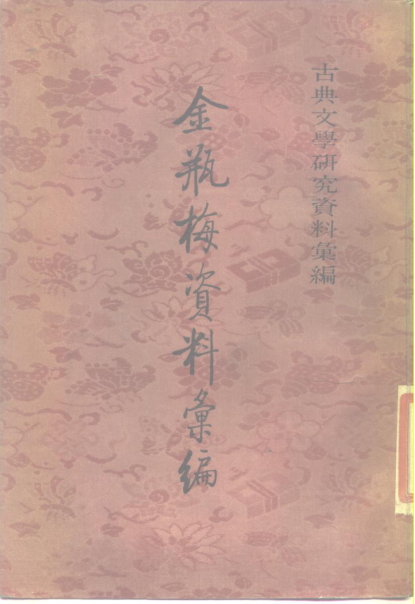 古典文學研究資料彙編
金瓶梅資料彙編